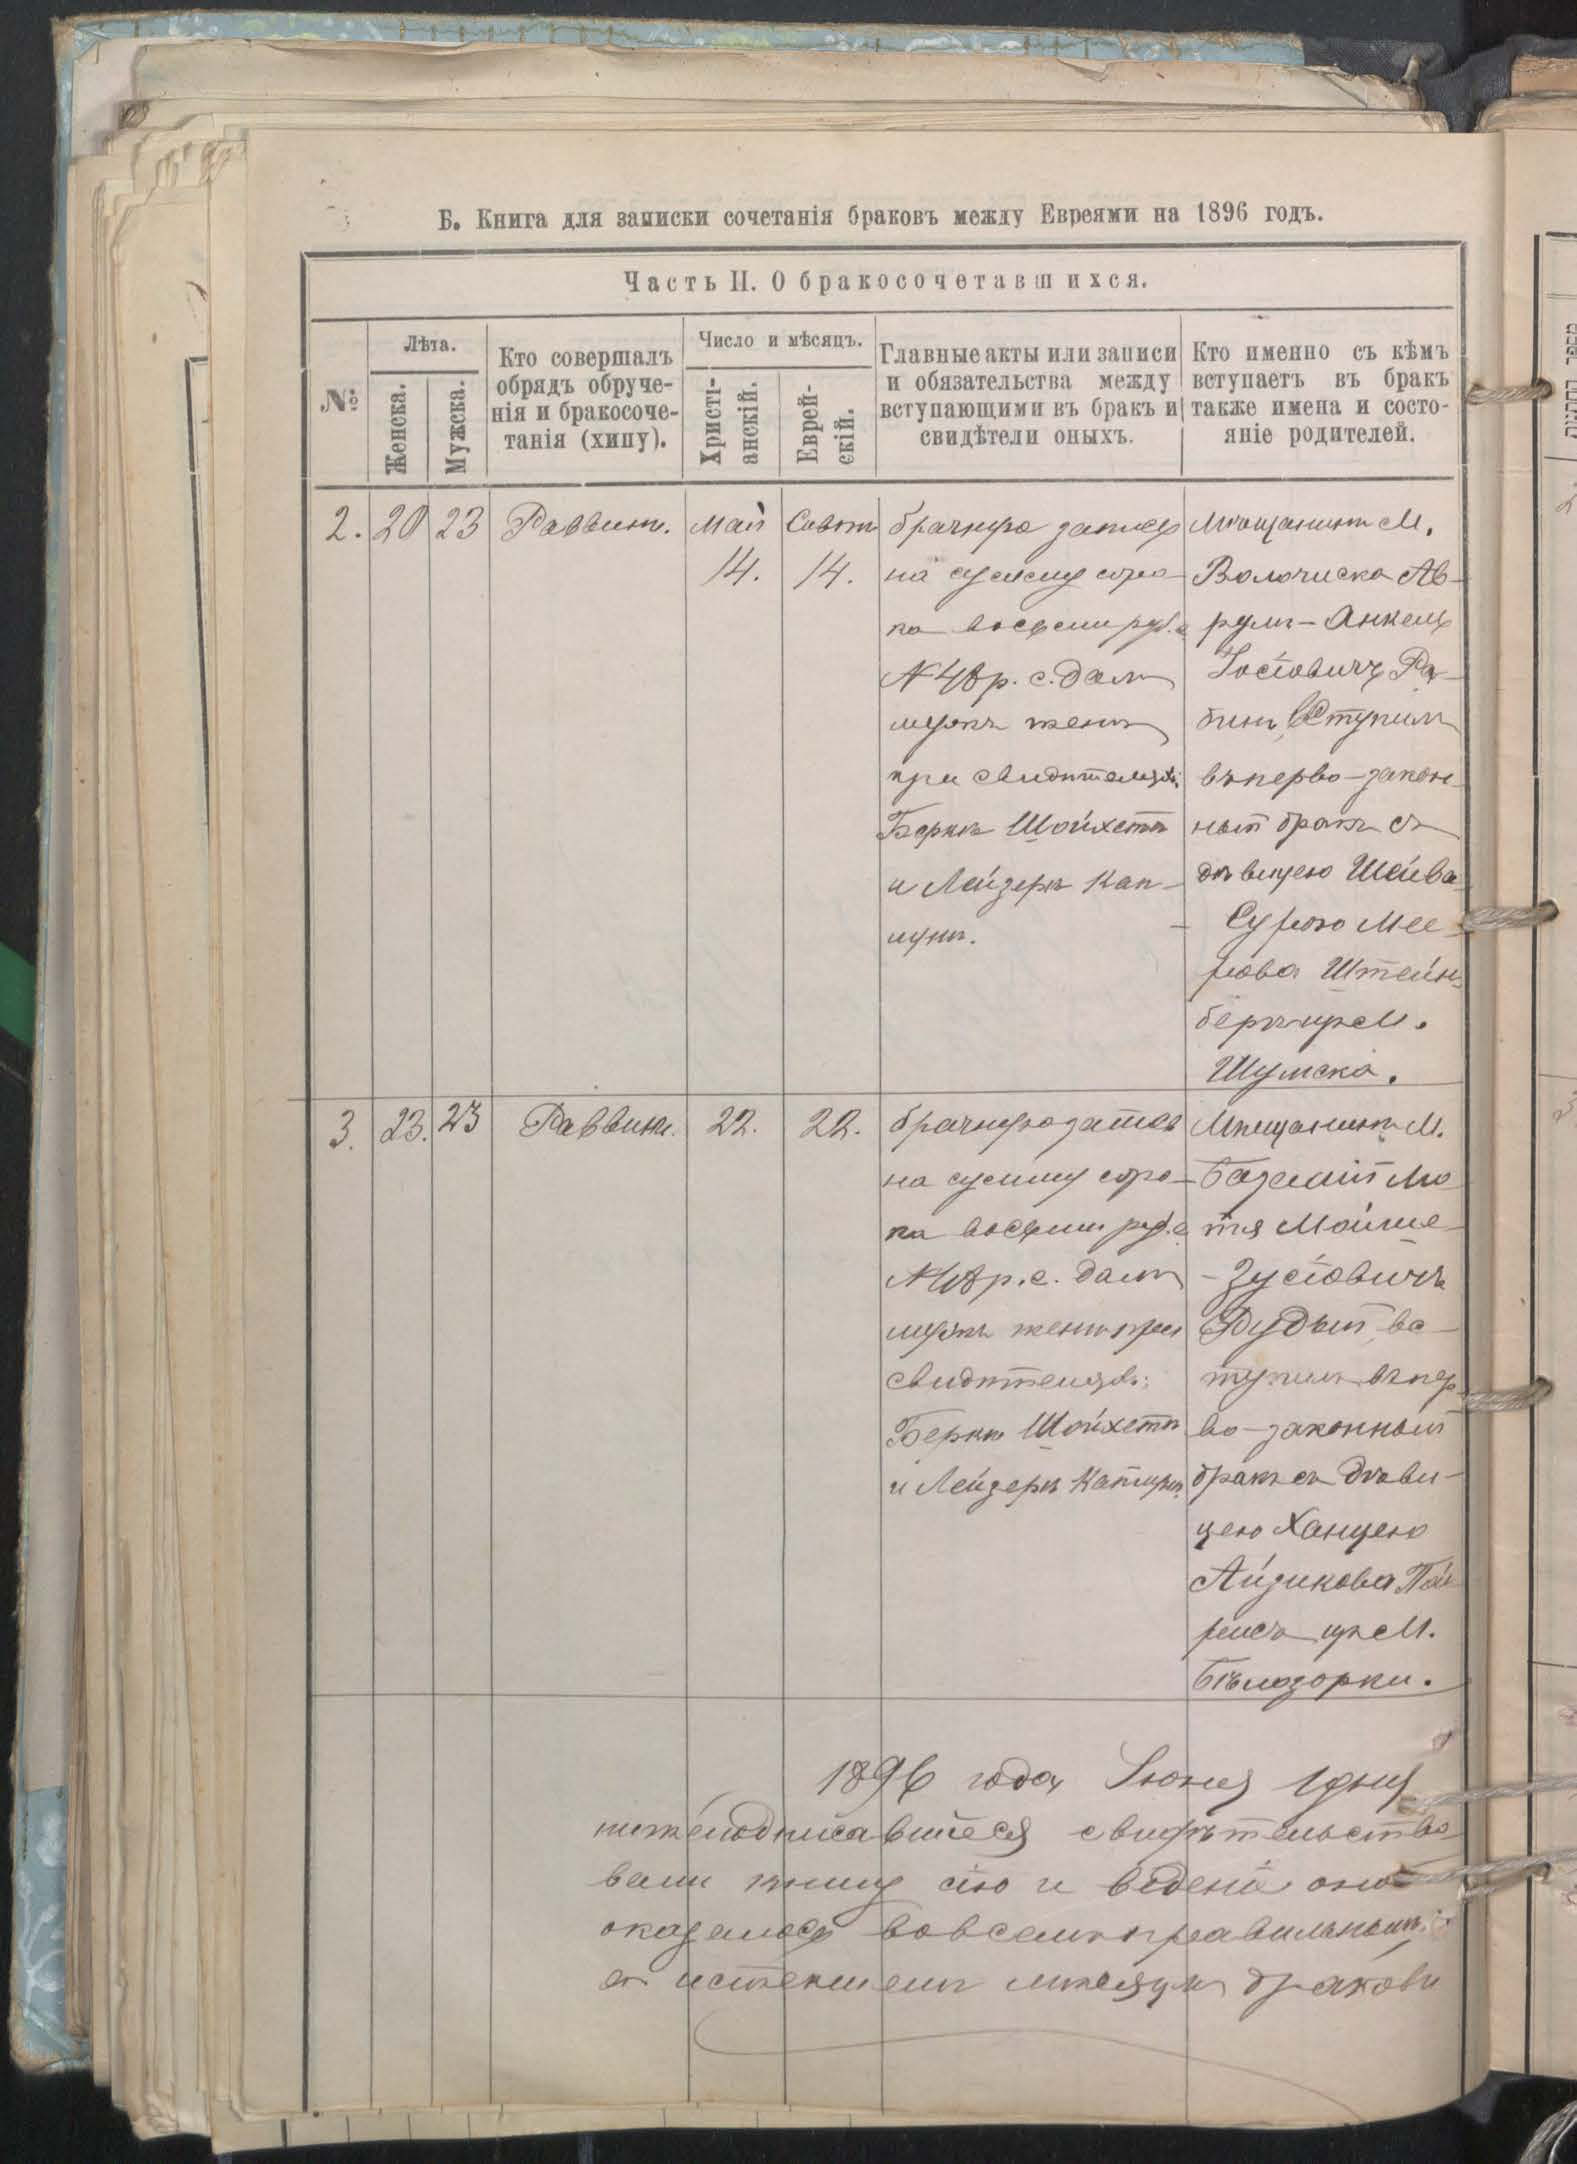 Б. Книга для записки сочетанія браковъ между Евреями на 1896 годъ.
Часть II. О бракосочетавшихся.
№
Лѣта.
Женска.
Мужска.
Кто совершалъ
обрядъ обруче-
нія и бракосоче-
танія (хипу).
Число и мѣсяцъ.
Христі-
анскій.
Еврей-
скій.
Главные акты или записи
и обязательства между
вступающими въ бракъ и
свидѣтели оныхъ.
Кто именно съ кѣмъ
вступаетъ въ бракъ
также имена и состо-
яніе родителей.
2. 20 23 Раввинъ. Май
14. 14.
брачную запись
на сумму соро-
ка восемь руб. с
№ 48 р. с. далъ
мужъ женѣ
при свидѣтеляхъ:
Берка Шойхетъ
и Лейзеръ Кап-
лунъ.
Мѣщанинъ М.
Волочиска Ав-
румъ-Анкель
Іосіовичъ Ра-
бинъ вступилъ
въ перво-закон-
ный бракъ съ
дѣвицею Шейва
- Сурою Мее-
рова Штейн-
бергъ изъ М.
Шумска.
3. 23. 23 Раввинъ. 22. 22.
брачную запись
на сумму соро-
ка восемь руб. с
№ 48 р. с. далъ
мужъ женѣ при
свидѣтеляхъ:
Берка Шойхетъ
и Лейзеръ Каплунъ
Мѣщанинъ М.
Базалій Мо-
тя Мойше
- Зусіовичъ
Рудый вс-
тупилъ въ пер-
во-законный
бракъ съ дѣви-
цею Ханцею
Айзикова
изъ М.
Бѣлозорки.
1896 года Іюня 1 дня
нижеподписавшіеся свидѣтельство
вали книгу сію и веденіе оной
оказалось вовсемъ правильнымъ.
въ истекшемъ мѣсяцѣ браковъ